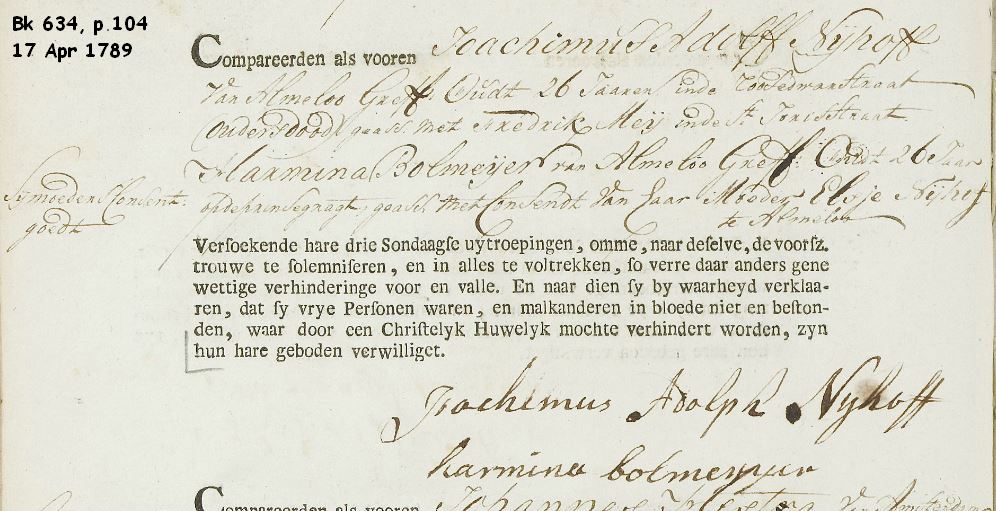 Bk 634, p.104
17 Apr 1789
Compareerden als vooren Joachimus Adolff Nijhoff
Van Almeloo Greff: Oudt 26 Jaaren inde
Ouders doodt geass met Fredrik Meij inde St Jorisstraat
Harmina Bolmeijer van Almeloo Greff Oudt 26 Jaar
opde prinsegragt, geass met Consendt van haar Moeder Elsje Nijhof
te Almeloo
Sijmoeders Konsent
goedt
Versoekende hare drie Sondaagse uytroepingen, omme, naar deselve, de voorsz.
trouwe te solemniseren, en in alles te voltrekken, so verre daar anders gene
wettige verhinderinge voor en valle. En naar dien sy by waarheyd verklaa-
ren, dat sy vrye Personen waren, en malkanderen in bloede niet en beston-
den, waar door een Christelyk Huwelyk mochte verhindert worden, zyn
hun hare geboden verwilliget.
Jochemus Adolph Nyhoff
harmina bolmeyur
Compareerden als vooren Johannes van Amsterdam